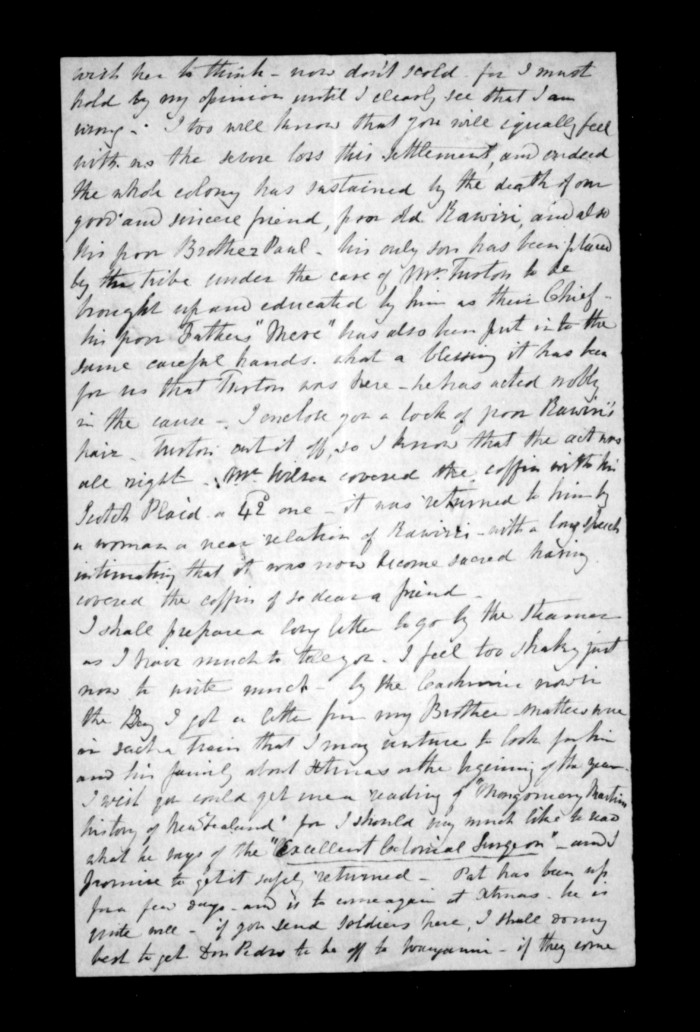 wish her to think - now don't scold - for I must
hold by my opinion until I clearly see that I am
wrong - I too well know that you will equally feel
with us the severe loss this settlement, and indeed
the whole colony has sustained by the death of our
good and sincere friend, poor old Rawiri, and also
his poor Brother Paul - his only son has been placed
by the tribe under the care of Mr. Turton to be
brought up and educated by him as their Chief -
his poor Fathers "Mere" has also been put into the
same careful hands. what a blessing it has been
for us that Turton was here - he has acted nobly
in the cause - I enclose you a lock of poor Rawiri's
hair - Turton cut it off, so I know that the act was
all right - Mr Wilson covered the coffin with his
Scotch Plaid a 42d one - it was returned to him by
a woman a near relation of Rawiri - with a long speech
intimating that it was now become sacred having
covered the coffin of so dear a friend -
I shall prepare a long letter to go by the Steamer
as I have much to tell you - I feel too shaky just
now to write much - by the Cashmere now in
the Bay I got a letter from my Brother - matters were
in such a train that I may venture to look for him
and his family about Xtmas or the beginning of the year -
I wish you could get me a reading of "Montgomery Martins
history of New Zealand" for I should very much like to read
what he says of the "Excellent Colonial Surgeon" - and I
promise to get it safely returned - Pat has been up
for a few days - and is to come again at Xtmas - he is
quite well - if you send soldiers here, I shall do my
best to get Don Pedro to be off to Wanganui - if they come